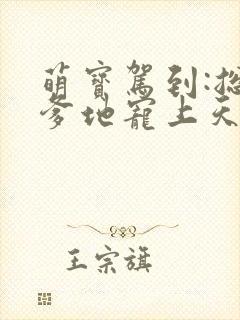 萌寶駕到:總
爹地寵上天
王宗旗